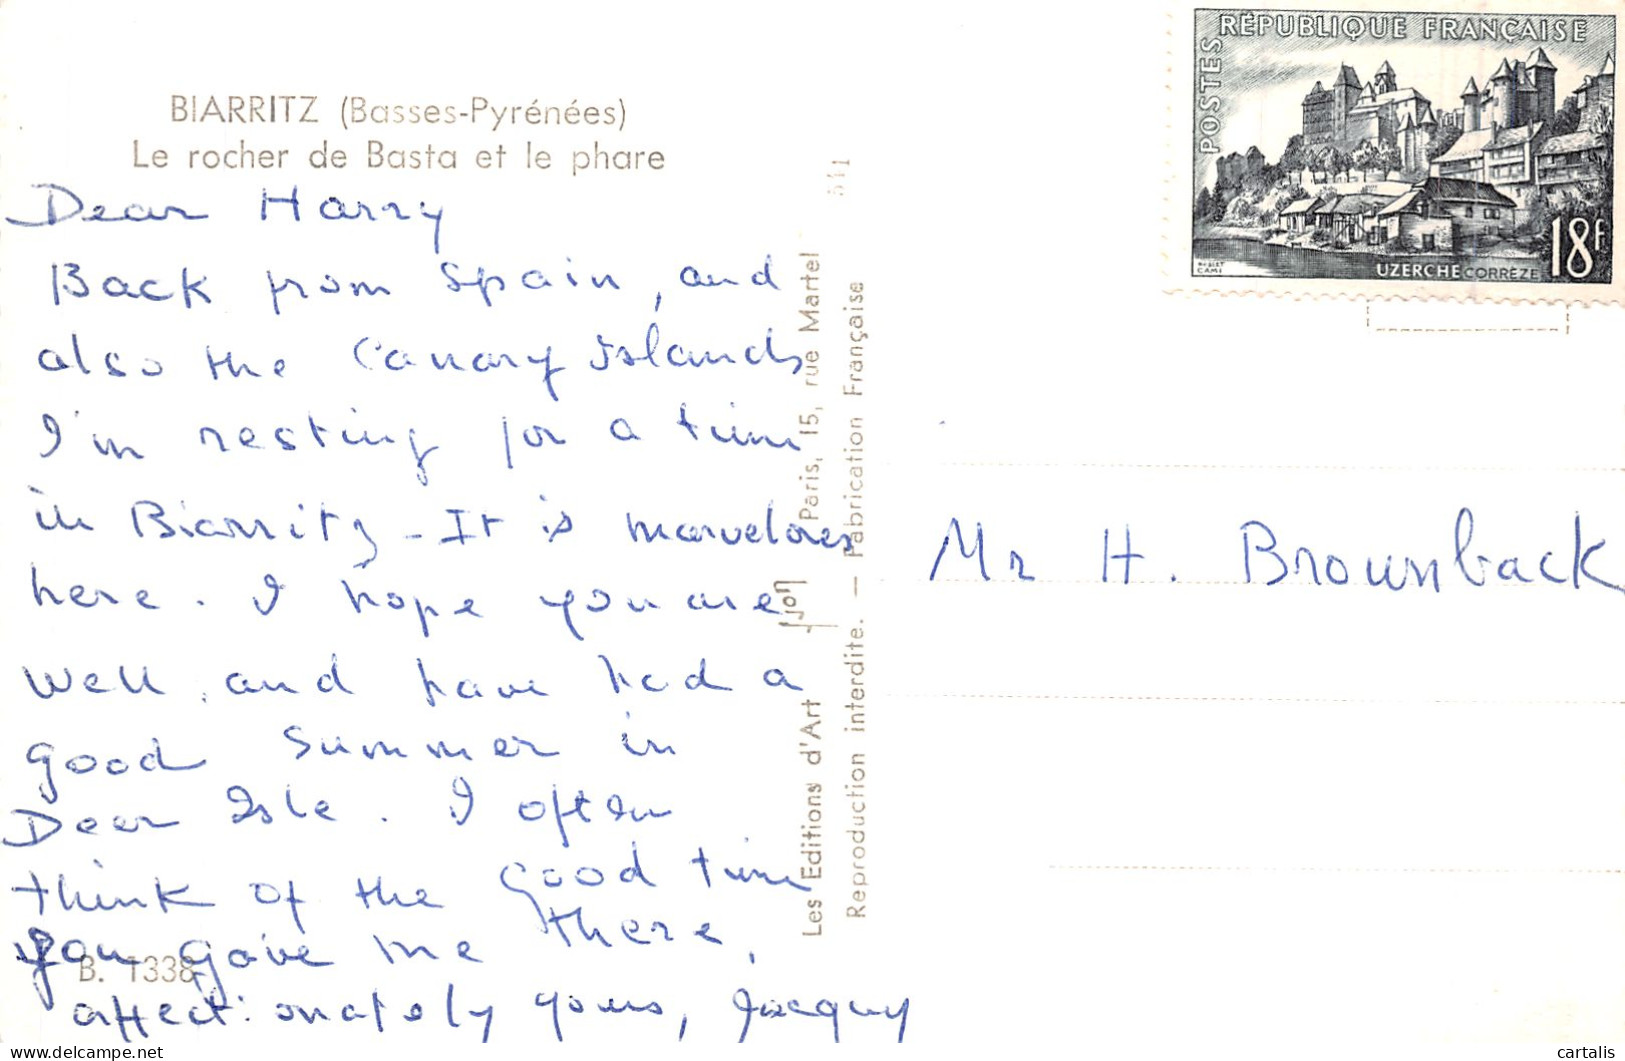 BIARRITZ (Basses-Pyrénées)
Le rocher de Basta et le phare
Dear Harry
Back from Spain, and
also the Canary Islands
I'm resting for a time
in Biarritz - It is marvelous
here. I hope you are
well, and have had a
good summer in
Deer Isle. I often
think of the good time
you gave me there,
affectionately yours, Jacquy
B. 1338
Les Editions d'Art Yvon Paris, 15, rue Martel
Reproduction interdite. — Fabrication Française
POSTES RÉPUBLIQUE FRANÇAISE
UZERCHE CORRÈZE 18F
CAMI
Mr H. Brownback
cartalis